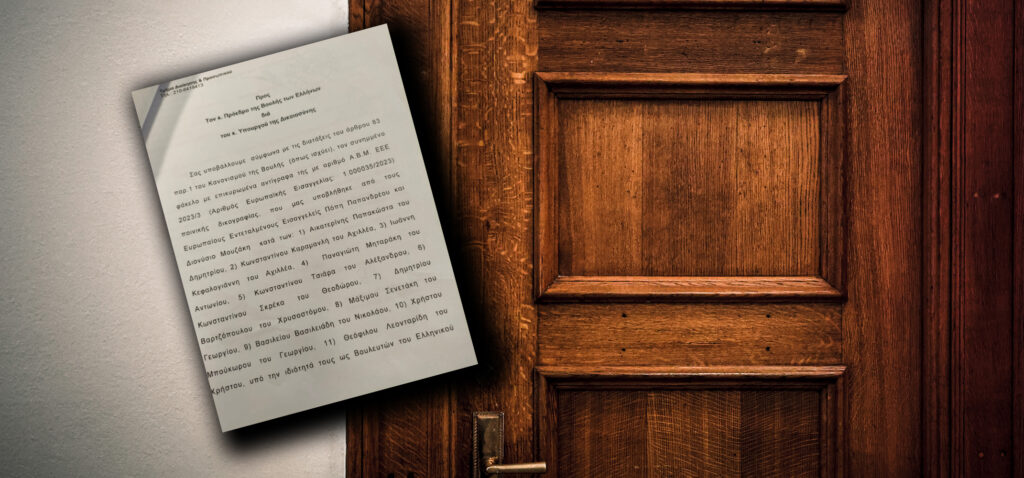 Τμήμα Διοίκησης & Προσωπικού
ΤΗΛ.: 210-6419413
Προς
Τον κ. Πρόεδρο της Βουλής των Ελλήνων
διά
του κ. Υπουργού της Δικαιοσύνης
Σας υποβάλλουμε σύμφωνα με τις διατάξεις του άρθρου 83
παρ.1 του Κανονισμού της Βουλής (όπως ισχύει), τον συνημμένο
φάκελο με επικυρωμένα αντίγραφα της με αριθμό Α.Β.Μ. ΕΕΕ
2023/3 (Αριθμός Ευρωπαϊκής Εισαγγελίας: 1.000035/2023)
ποινικής δικογραφίας, που μας υποβλήθηκε από τους
Ευρωπαίους Εντεταλμένους Εισαγγελείς Πόπη Παπανδρέου και
Διονύσιο Μουζάκη κατά των: 1) Αικατερίνης Παπακώστα του
Δημητρίου, 2) Κωνσταντίνου Καραμανλή του Αχιλλέα, 3) Ιωάννη
Κεφαλογιάννη του Αχιλλέα, 4) Παναγιώτη Μηταράκη του
Αντωνίου, 5) Κωνσταντίνου Τσιάρα του Αλέξανδρου, 6)
Κωνσταντίνου Σκρέκα του Θεοδώρου, 7) Δημητρίου
Βαρτζόπουλου του Χρυσοστόμου, 8) Μάξιμου Σενετάκη του
Γεωργίου, 9) Βασιλείου Βασιλειάδη του Νικολάου, 10) Χρήστου
Μπουκώρου του Γεωργίου, 11) Θεόφιλου Λεονταρίδη του
Χρήστου, υπό την ιδιότητά τους ως Βουλευτών του Ελληνικού